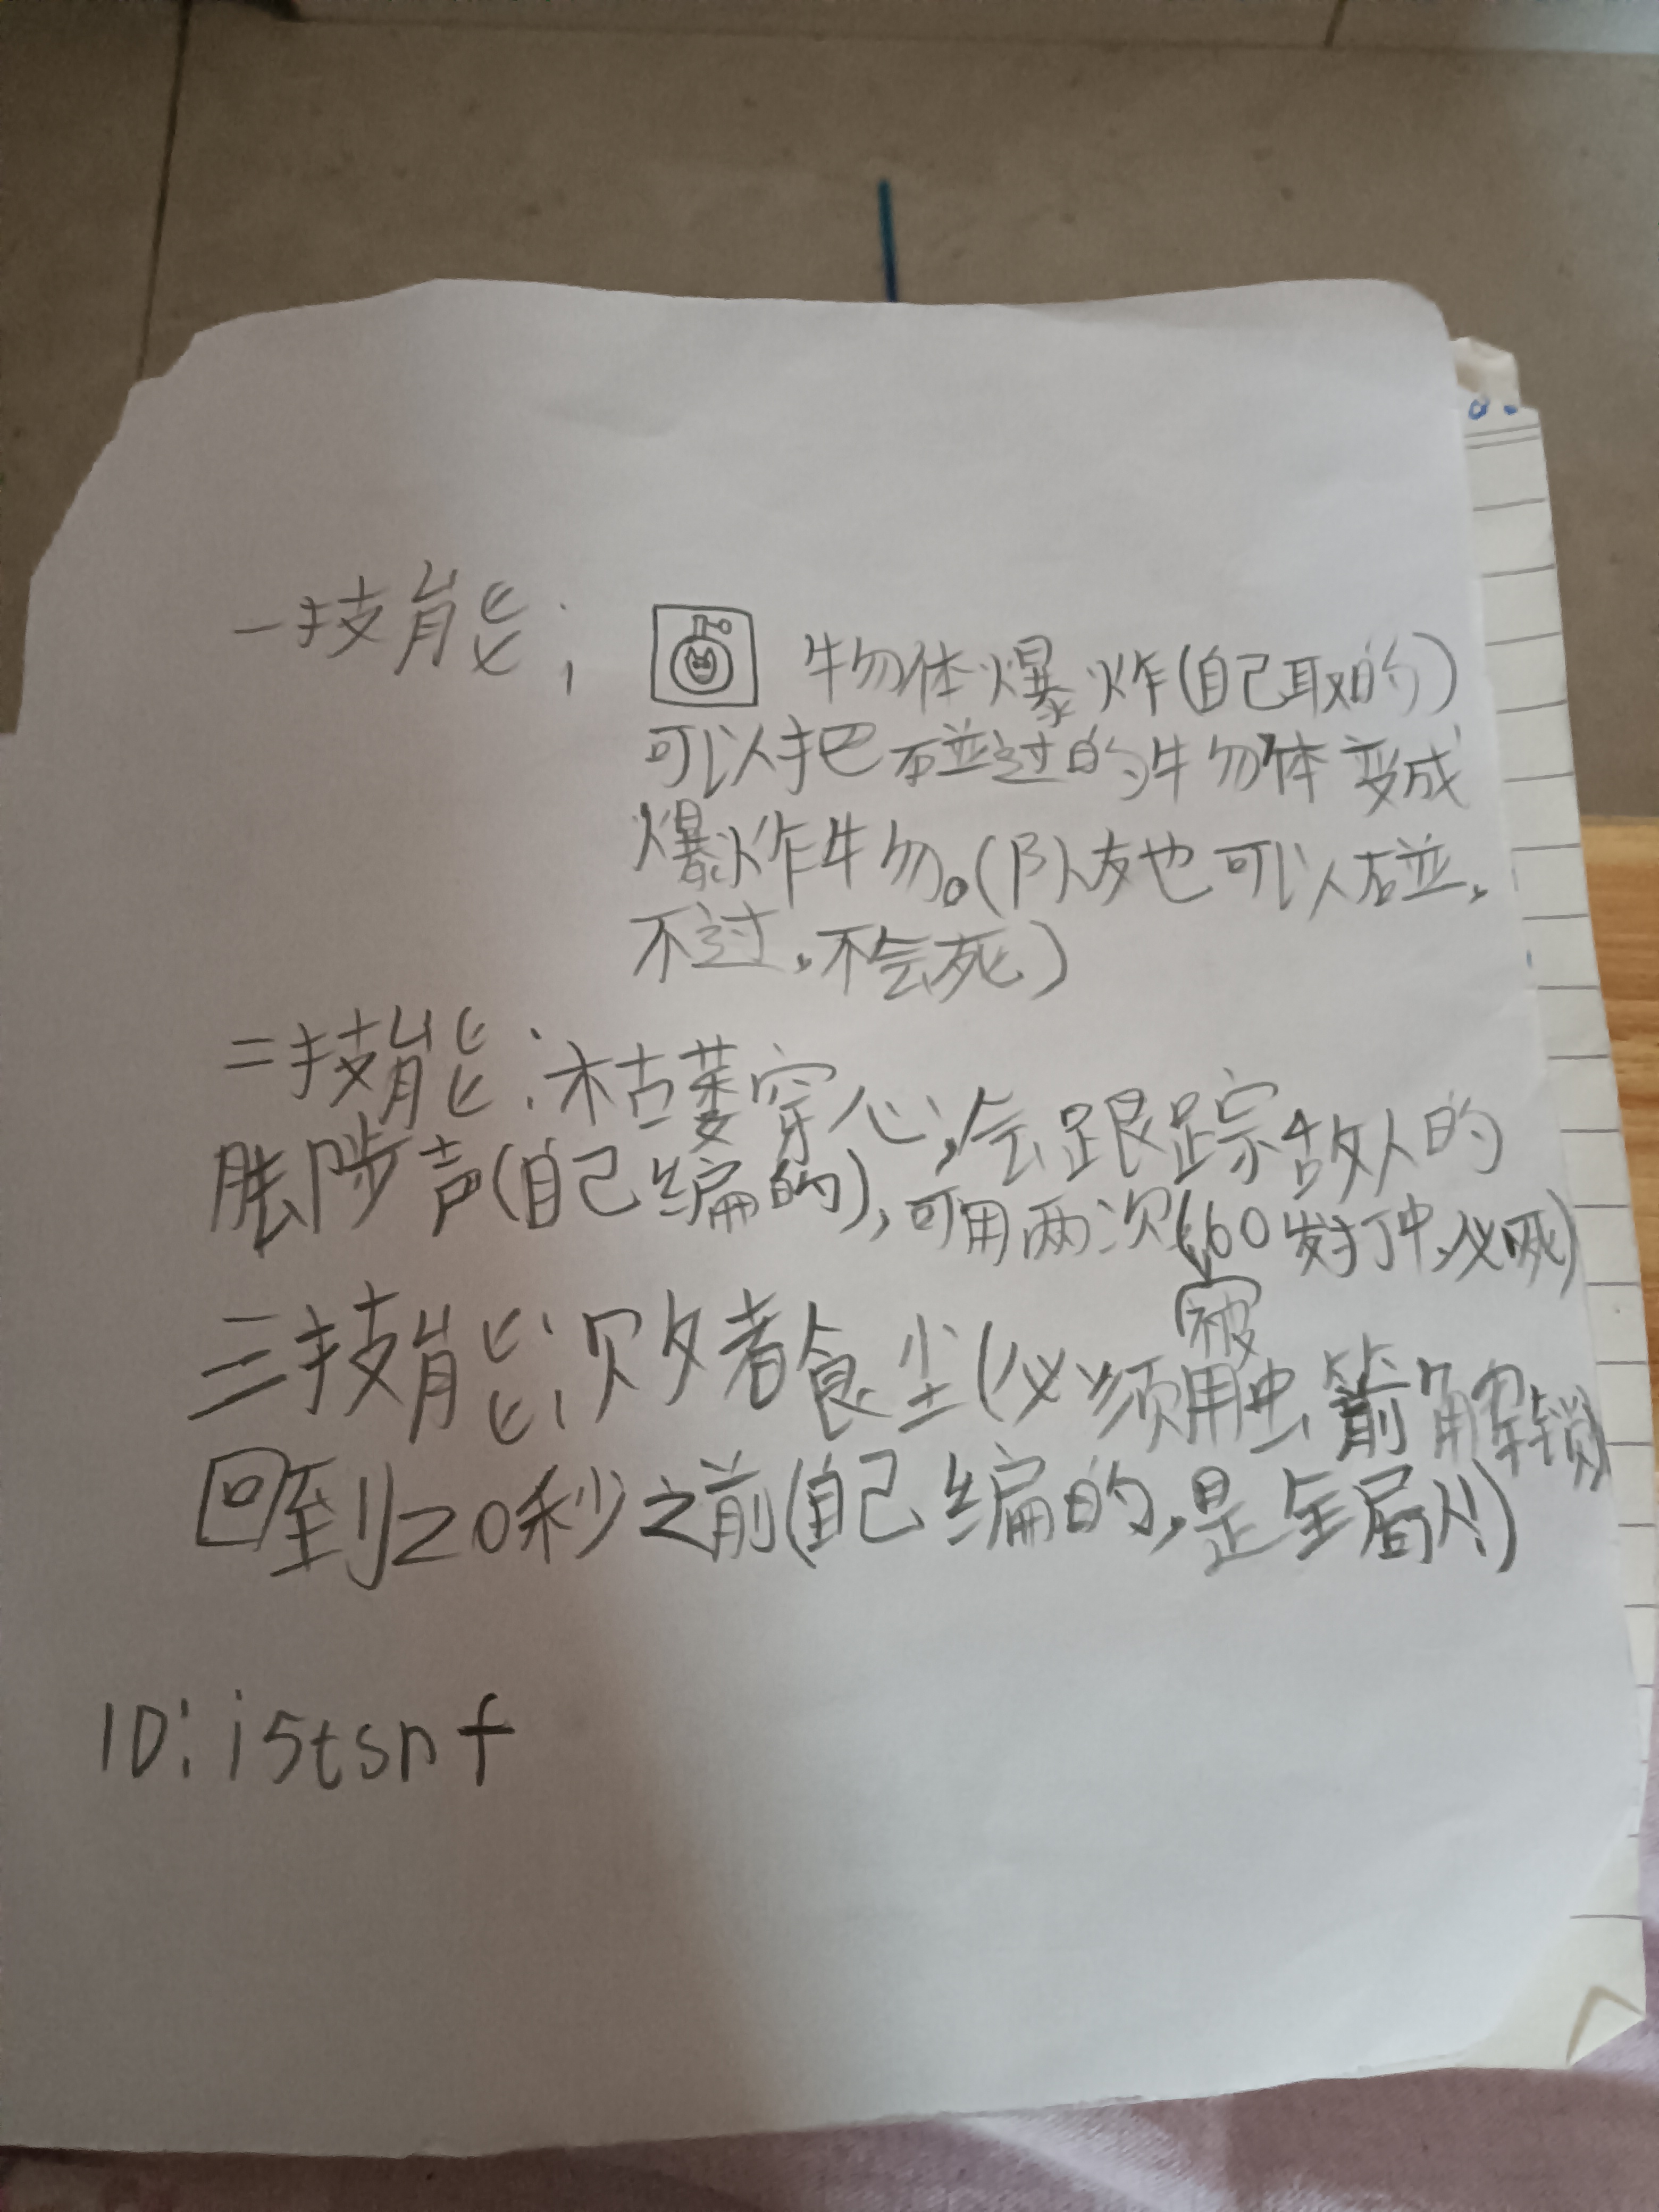 一技能： 物体爆炸(自己取的)
可以把碰过的物体变成
爆炸物。(队友也可以碰，
不过，不会死)
二技能：枯萎穿心，会跟踪敌人的
脚步声(自己编的)，可用两次(60发打中，必死)
被
三技能：败者食尘(必须用虫箭解锁)
回到20秒之前(自己编的，是全局从!)
ID: i5tsnf